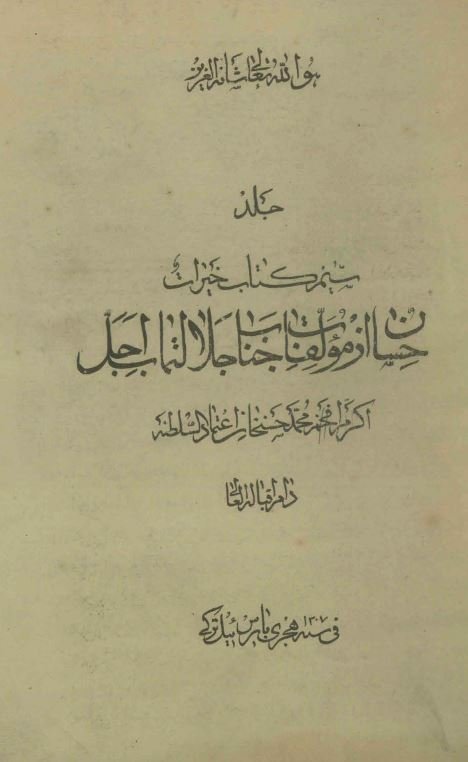 هو الله تعالی شأنه العزیز
جلد
سیم کتاب خیرات
حسان از مؤلفات جناب جلالتمآب اجل
اکرم افخم محمد حسنخان اعتماد السلطنه
دام اقباله العالی
فی سنه ۱۳۰۷ هجری بارس ئیل ترکی